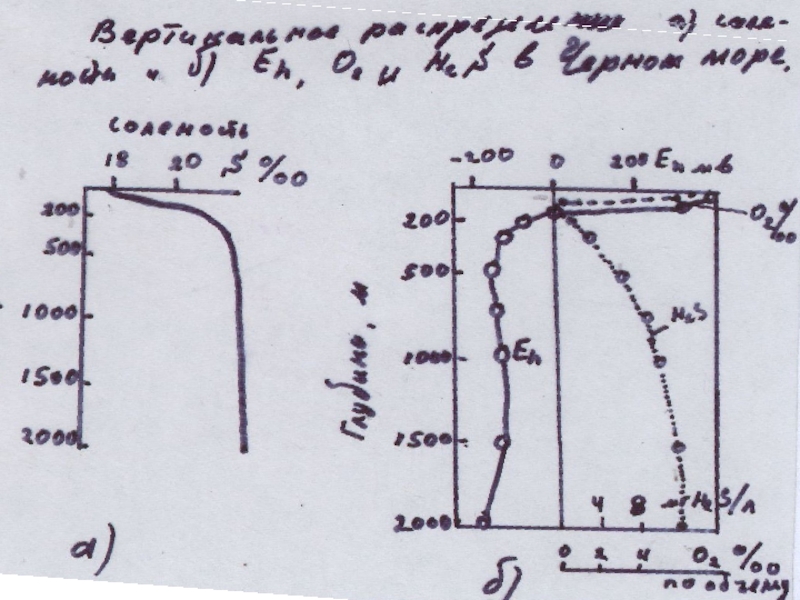 Вертикальное распределение а) соле-
ности и б) Eh, O₂ и H₂S в Черном море.
соленость
18 20 S ‰
200
500
1000
1500
2000
а)
-200 0 200 Eh мв
O₂ ‰
Глубина, м
200
500
1000
1500
2000
H₂S
Eh
4 8 мг H₂S/л
0 2 4 O₂ ‰
по объему
б)